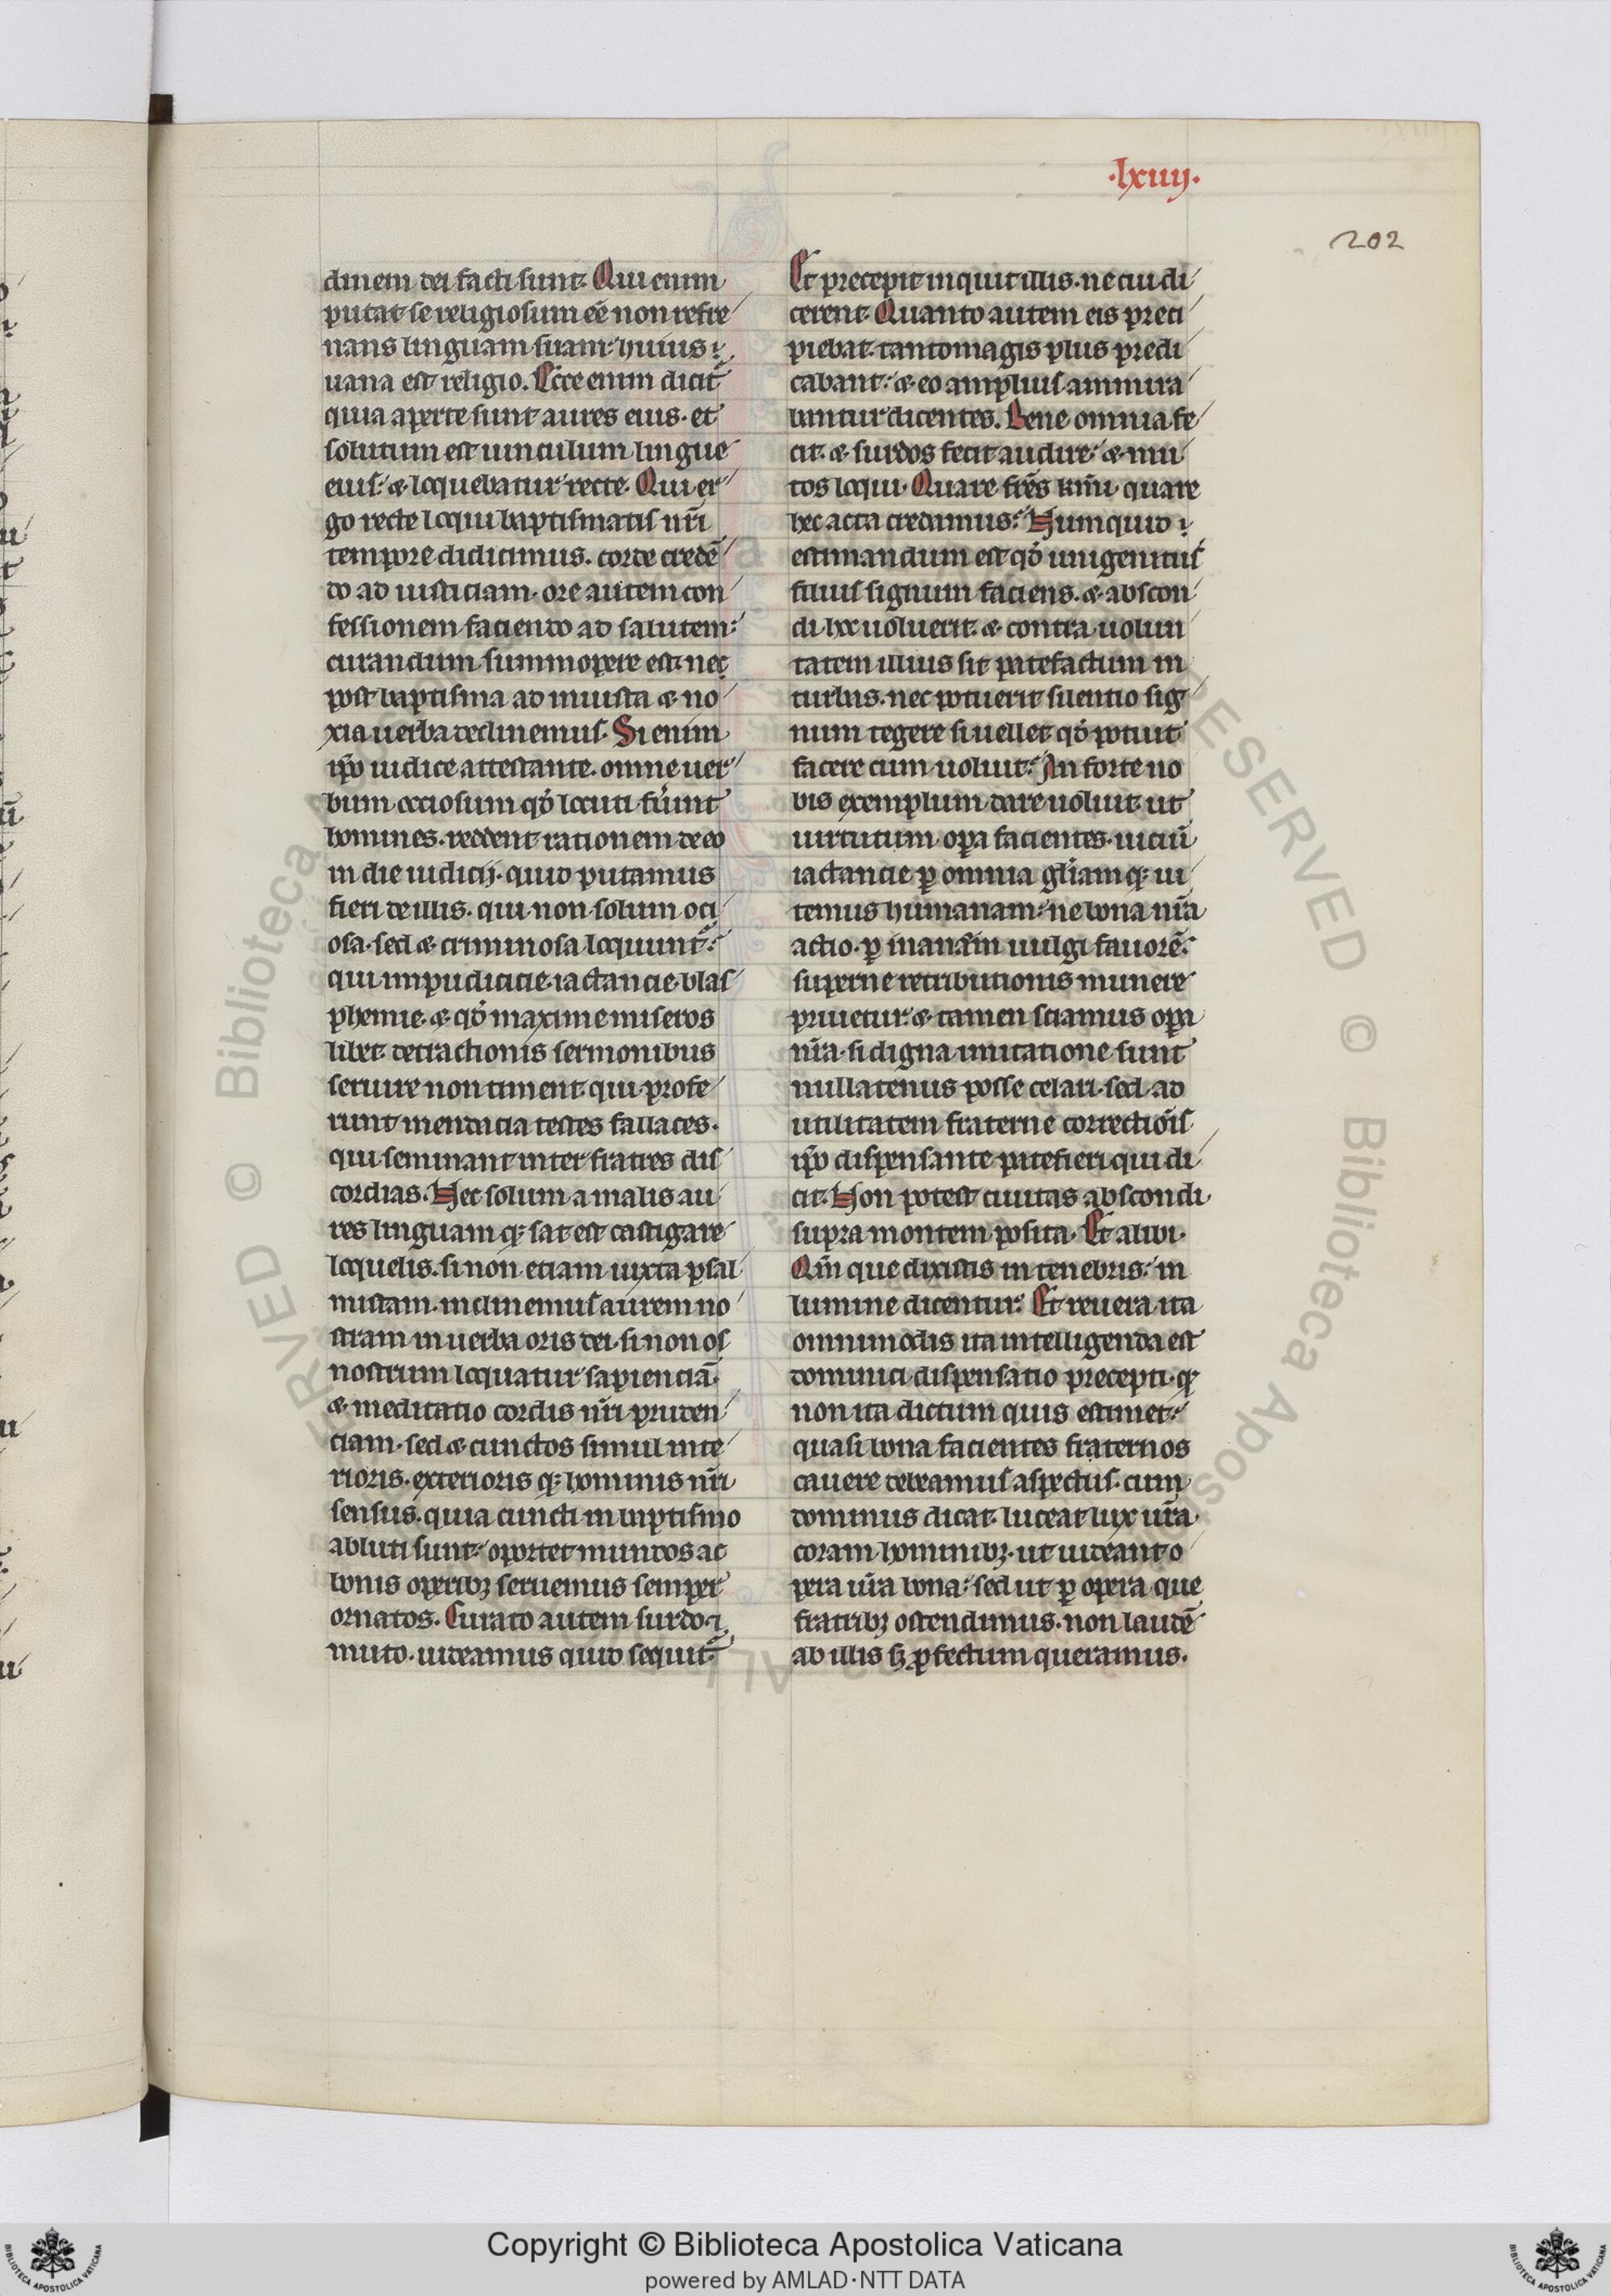 ·lxiiij·
202
dinem dei facti sunt. Qui enim
putat se religiosum eē non refre
nans linguam suam: huius
uana est religio. Ecce enim dicit̃
quia aperte sunt aures eius. et
solutum est uinculum lingue
eius: & loquebatur recte. Qui er
go recte loqui baptismatis nr̄i
tempore didicimus. corde credē
do ad iusticiam. ore autem con
fessionem faciendo ad salutem:
curandum summopere est. nec
post baptisma ad iniusta & no
xia uerba declinemus. Si enim
ip̄o iudice attestante. omne uer
bum occiosum qd̓ locuti fu̓int
homines. reddent rationem de eo
in die iudicij. quid putamus
fieri de illis. qui non solum oci
osa. sed & criminosa loquunt̃:
qui impudicicie. iactancie. blas
phemie. & qd̓ maxime miseros
libet. detractionis sermonibus
seruire non timent. qui profe
runt mendacia testes fallaces.
qui seminant inter fratres dis
cordias. Nec solum a malis au
res linguam q; sat est castigare
loquelis. si non etiam iuxta psal
mistam. inclinemus aurem no
stram in uerba oris dei. si non os
nostrum loquatur sapienciā.
& meditatio cordis nr̄i pruden
ciam. sed & cunctos simul inte
rioris. exterioris q; hominis nr̄i
sensus. quia cuncti in baptismo
abluti sunt: oportet mundos ac
bonis operibꝫ seruemus semper
ornatos. Curato autem surdo ⁊
muto. uideamus quid sequit̃.
Et precepit inquit illis. ne cui di
cerent. Quanto autem eis preci
piebat. tanto magis plus predi
cabant: & eo amplius ammira
bantur dicentes. Bene omnia fe
cit. & surdos fecit audire: & mu
tos loqui. Quare fr̄es km̄i. quare
hec acta credamus: Numquid
estimandum est qd̓ unigenitus
filius signum faciens. & abscon
di hoc uoluerit. & contra uolun
tatem illius sit patefactum in
turbis. nec potuerit silentio sig
num tegere si uellet. qd̓ potuit
facere cum uoluit: An forte no
bis exemplum dare uoluit. ut
uirtutum opa facientes. uiciū
iactancie ꝑ omnia gl̓iam q; ui
temus humanam: ne bona nr̄a
actio. ꝑ inanem uulgi fauorē:
superne retributionis munere
priuetur: & tamen sciamus opa
nr̄a. si digna imitatione sunt
nullatenus posse celari. sed ad
utilitatem fraterne correctiōis
ip̄o dispensante patefieri. qui di
cit. Non potest ciuitas abscondi
supra montem posita. Et alibi.
Qm̄ que dixistis in tenebris: in
lumine dicentur: Et reuera ita
omnimodis ita intelligenda est
dominici dispensatio precepti. q;
non ita dictum quis estimet:
quasi bona facientes fraternos
cauere debeamus aspectus. cum
dominus dicat. luceat lux ur̄a
coram hominibꝫ. ut uideant o
pera ur̄a bona: sed ut ꝑ opera que
fratribꝫ ostendimus. non laudē
ab illis sꝫ ꝓfectum queramus.
Copyright © Biblioteca Apostolica Vaticana
powered by AMLAD·NTT DATA